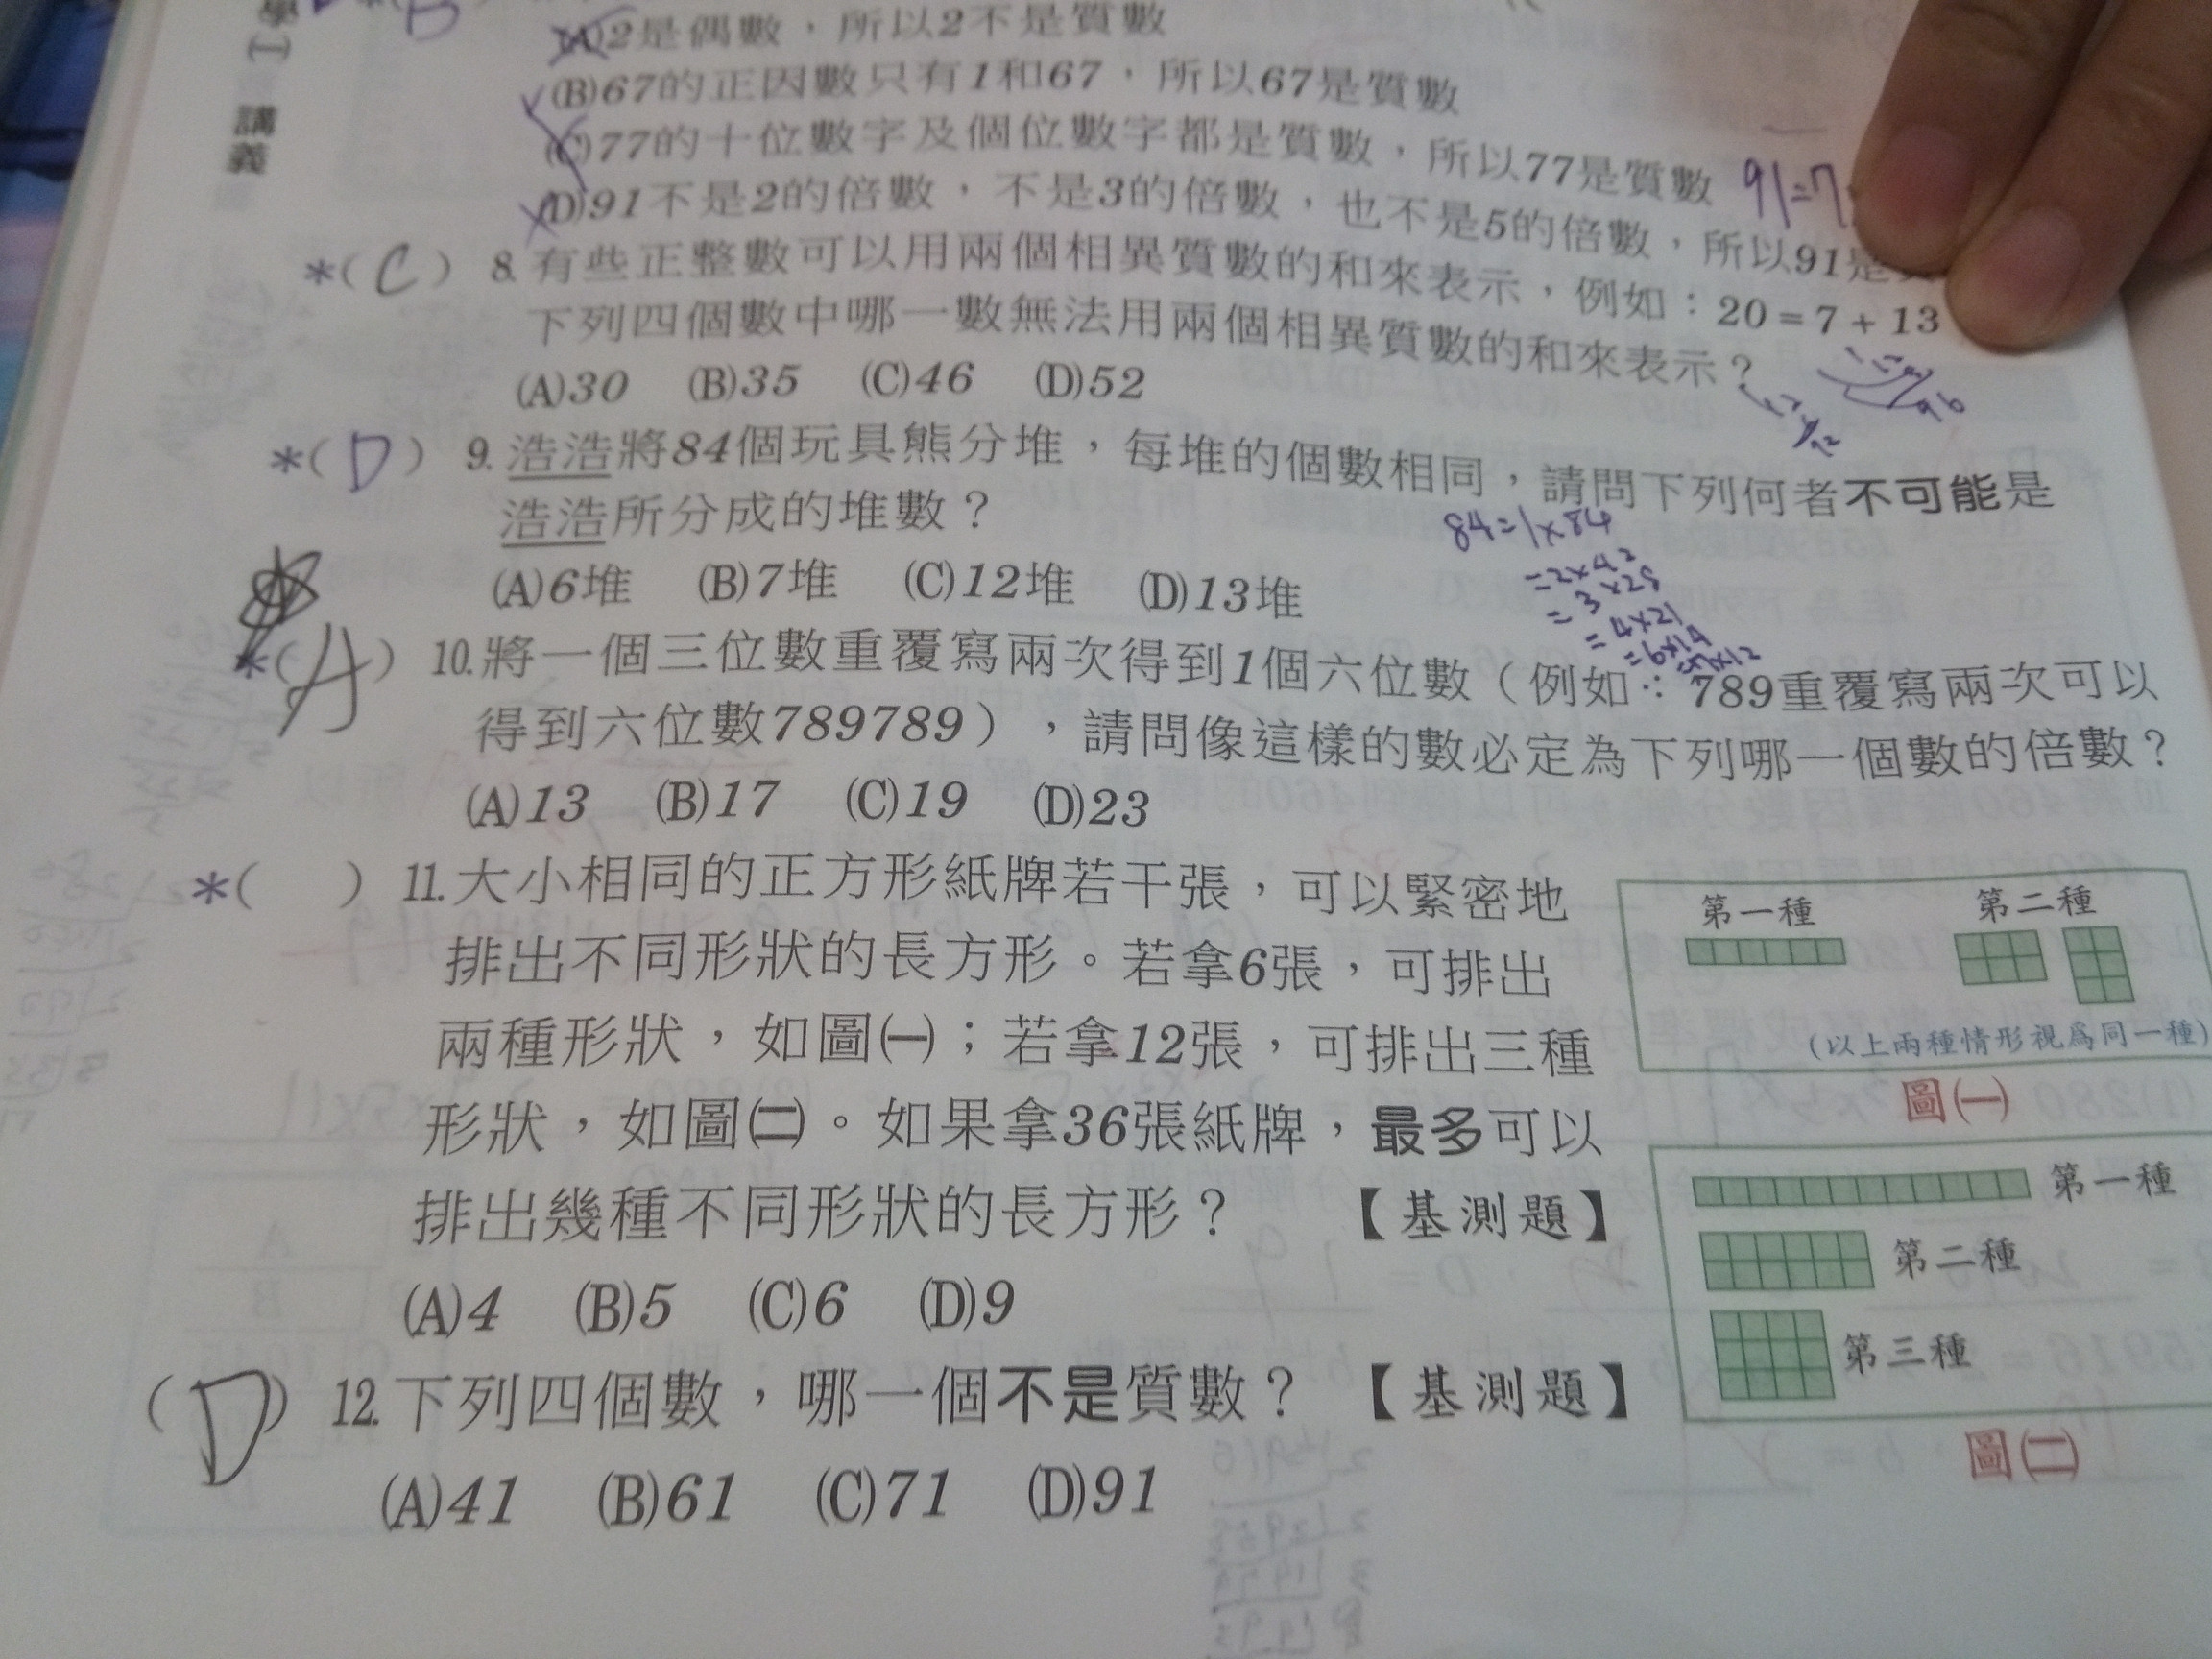 學
[I]
講義
B
(A)2是偶數，所以2不是質數
(B)67的正因數只有1和67，所以67是質數
(C)77的十位數字及個位數字都是質數，所以77是質數
91=7
(D)91不是2的倍數，不是3的倍數，也不是5的倍數，所以91是
*(C) 8.有些正整數可以用兩個相異質數的和來表示，例如：20=7+13
下列四個數中哪一數無法用兩個相異質數的和來表示？
(A)30 (B)35 (C)46 (D)52
*(D) 9.浩浩將84個玩具熊分堆，每堆的個數相同，請問下列何者不可能是
浩浩所分成的堆數？
84=1×84
=2×42
=3×28
=4×21
=6×14
=7×12
(A)6堆 (B)7堆 (C)12堆 (D)13堆
*(A) 10.將一個三位數重覆寫兩次得到1個六位數（例如：789重覆寫兩次可以
得到六位數789789），請問像這樣的數必定為下列哪一個數的倍數？
(A)13 (B)17 (C)19 (D)23
*( ) 11.大小相同的正方形紙牌若干張，可以緊密地
排出不同形狀的長方形。若拿6張，可排出
兩種形狀，如圖㈠；若拿12張，可排出三種
形狀，如圖㈡。如果拿36張紙牌，最多可以
排出幾種不同形狀的長方形？ 【基測題】
(A)4 (B)5 (C)6 (D)9
第一種 第二種
(以上兩種情形視為同一種)
圖㈠
第一種
第二種
第三種
圖㈡
(D) 12.下列四個數，哪一個不是質數？ 【基測題】
(A)41 (B)61 (C)71 (D)91